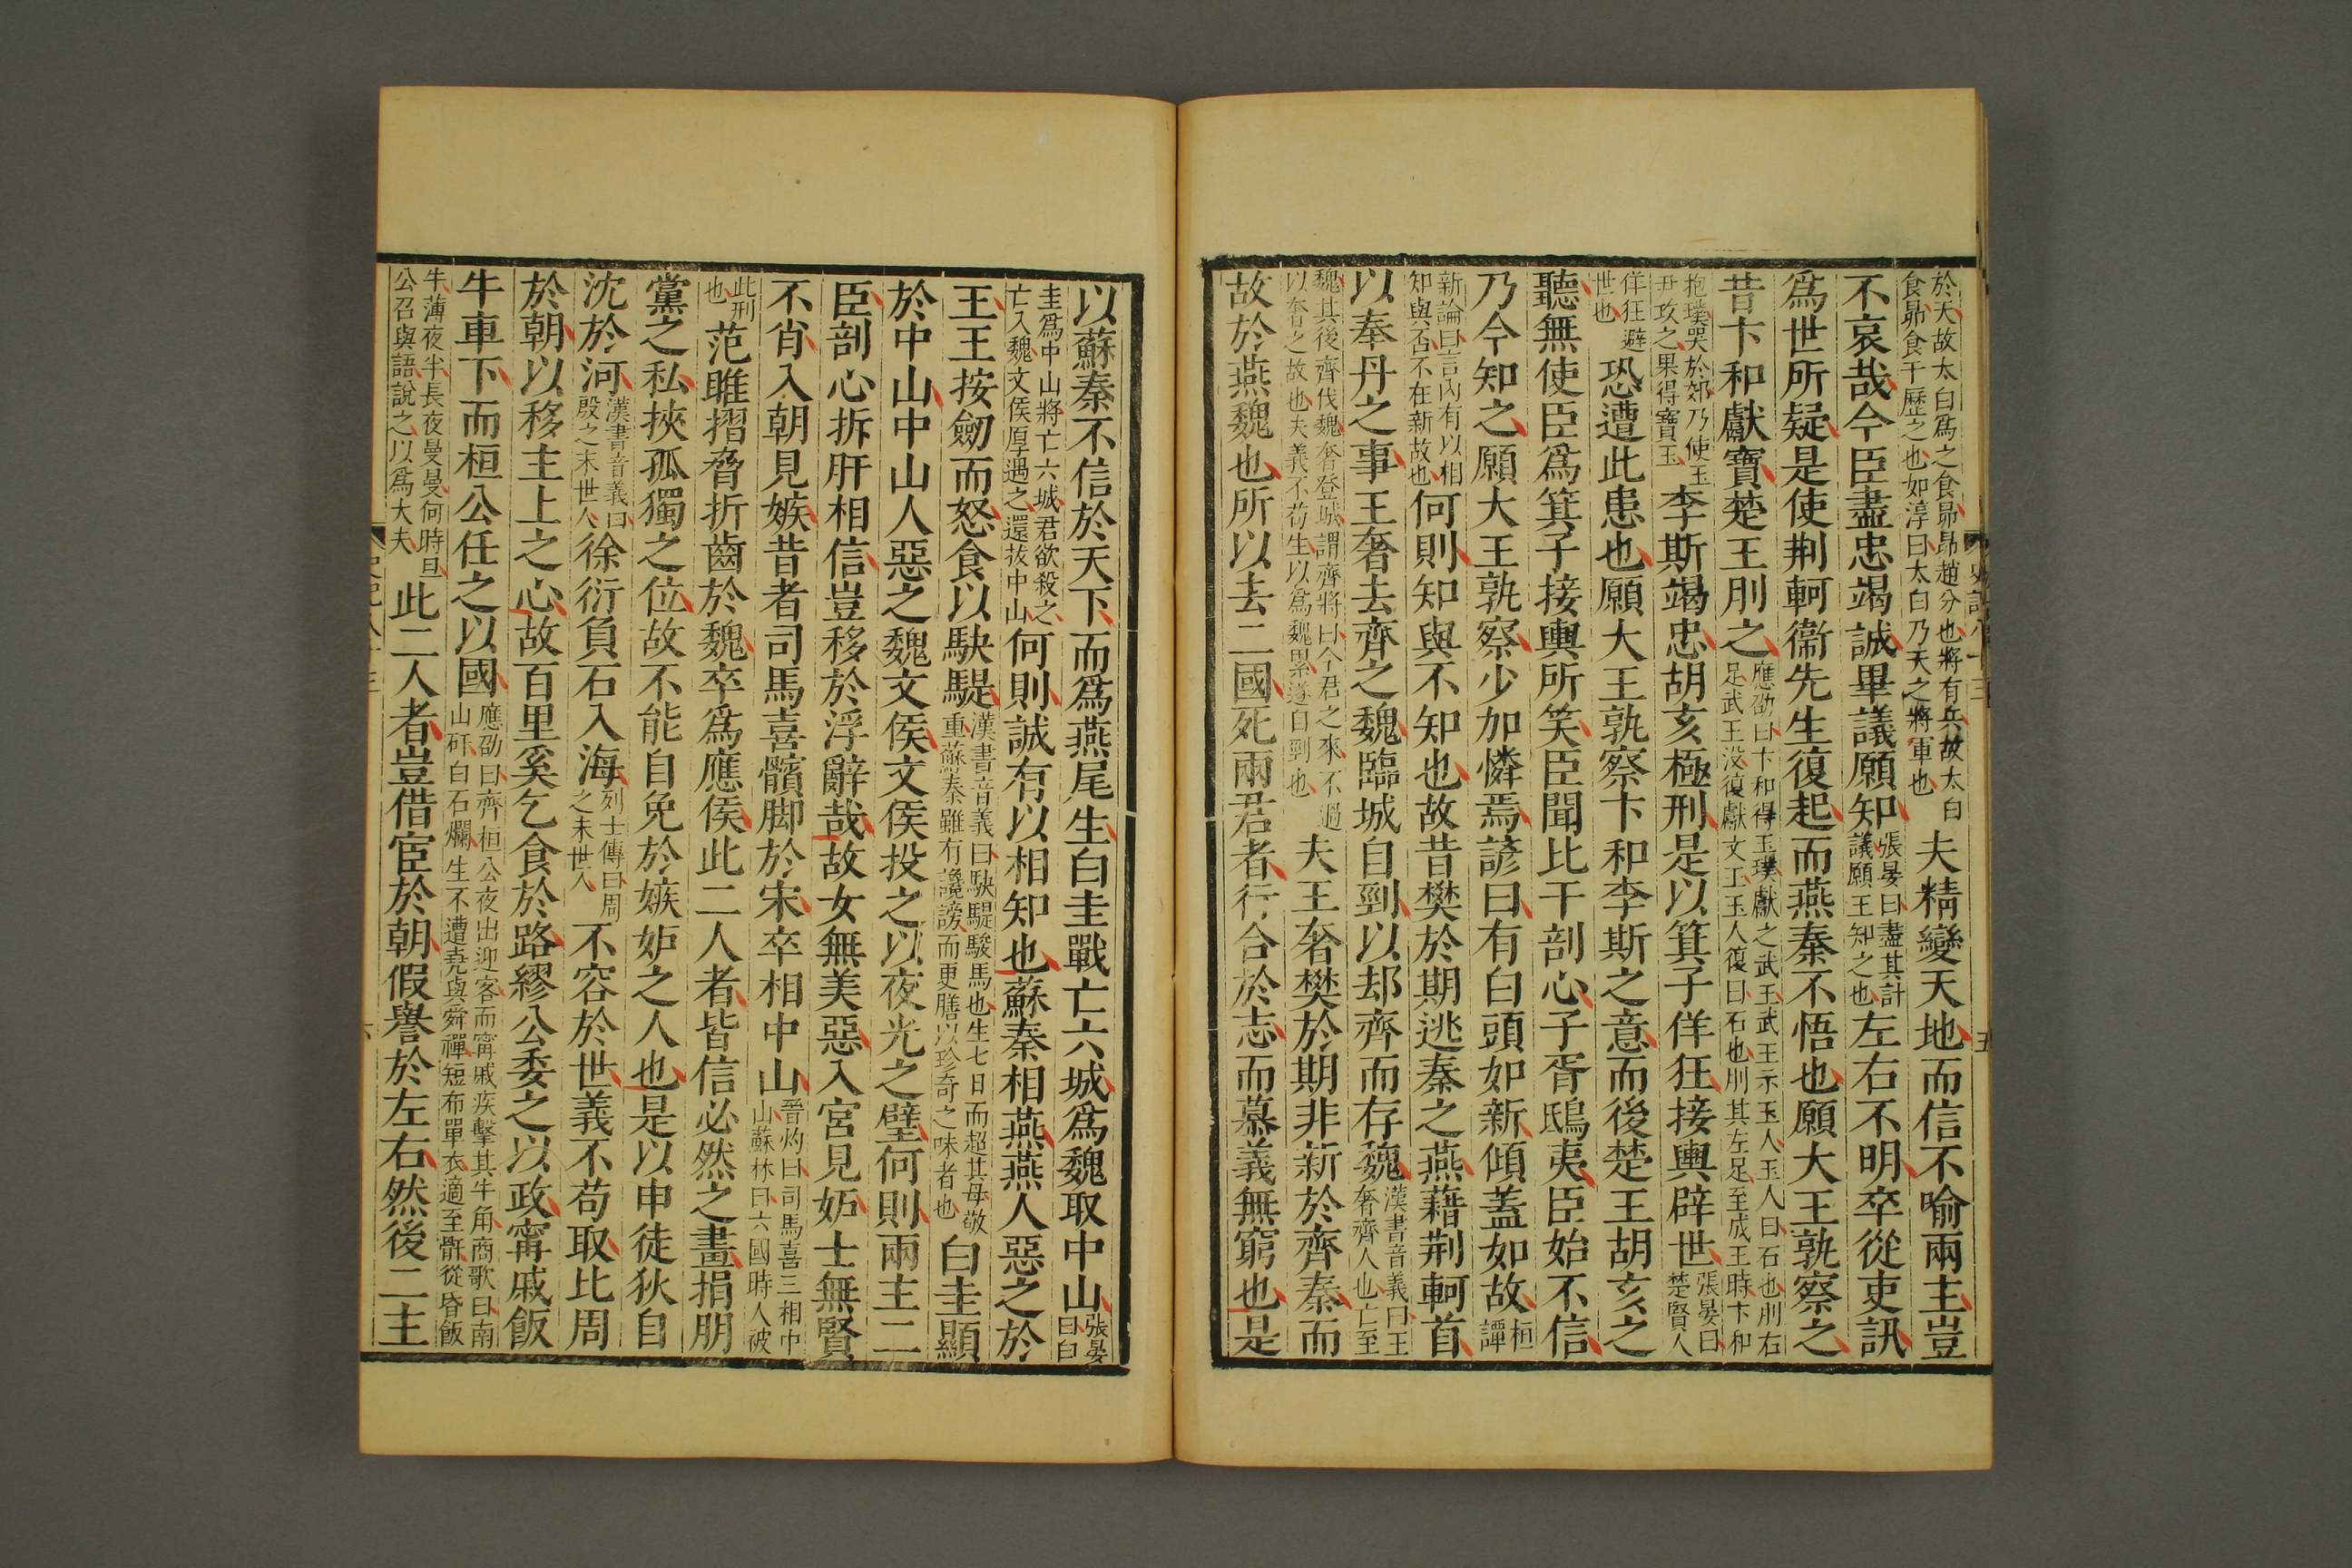 於天故太白爲之食昴昴趙分也將有兵故太白
食昴食干歷之也如淳曰太白乃天之將軍也
夫精變天地而信不喻兩主豈
不哀哉今臣盡忠竭誠畢議願知
張晏曰盡其計
議願王知之也
左右不明卒從吏訊
爲世所疑是使荆軻衞先生復起而燕秦不悟也願大王孰察之
昔卞和獻寶楚王刖之
應劭曰卞和得玉璞獻之武王武王示玉人玉人曰石也刖右
足武王没復獻文王玉人復曰石也刖其左足至成王時卞和
抱璞哭於郊乃使玉
尹攻之果得寶玉
李斯竭忠胡亥極刑是以箕子佯狂接輿辟世
張晏曰
楚賢人
佯狂避
世也
恐遭此患也願大王孰察卞和李斯之意而後楚王胡亥之
聽無使臣爲箕子接輿所笑臣聞比干剖心子胥鴟夷臣始不信
乃今知之願大王孰察少加憐焉諺曰有白頭如新傾蓋如故
桓譚
新論曰言內有以相
知與否不在新故也
何則知與不知也故昔樊於期逃秦之燕藉荆軻首
以奉丹之事王奢去齊之魏臨城自剄以却齊而存魏
漢書音義曰王
奢齊人也亡至
魏其後齊伐魏奢登城謂齊將曰今君之來不過
以奢之故也夫義不苟生以爲魏累遂自剄也
夫王奢樊於期非新於齊秦而
故於燕魏也所以去二國死兩君者行合於志而慕義無窮也是
以蘇秦不信於天下而爲燕尾生白圭戰亡六城爲魏取中山
張晏
曰白
圭爲中山將亡六城君欲殺之
亡入魏文侯厚遇之還拔中山
何則誠有以相知也蘇秦相燕燕人惡之於
王王按劒而怒食以駃騠
漢書音義曰駃騠駿馬也生七日而超其母敬
重蘇秦雖有讒謗而更膳以珍奇之味者也
白圭顯
於中山中山人惡之魏文侯文侯投之以夜光之璧何則兩主二
臣剖心拆肝相信豈移於浮辭哉故女無美惡入宮見妬士無賢
不肖入朝見嫉昔者司馬喜髕脚於宋卒相中山
晉灼曰司馬喜三相中
山蘇林曰六國時人被
此刑
也
范雎摺脅折齒於魏卒爲應侯此二人者皆信必然之畫捐朋
黨之私挾孤獨之位故不能自免於嫉妒之人也是以申徒狄自
沈於河
漢書音義曰
殷之末世人
徐衍負石入海
列士傳曰周
之末世人
不容於世義不苟取比周
於朝以移主上之心故百里奚乞食於路繆公委之以政甯戚飯
牛車下而桓公任之以國
應劭曰齊桓公夜出迎客而甯戚疾擊其牛角商歌曰南
山矸白石爛生不遭堯與舜禪短布單衣適至骭從昏飯
牛薄夜半長夜曼曼何時旦
公召與語說之以爲大夫
此二人者豈借宦於朝假譽於左右然後二主